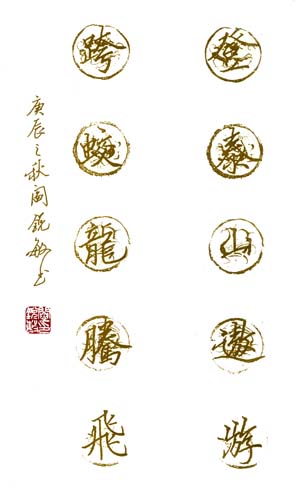 登泰山遨游
跨蛟龍騰飛
庚辰之秋阎锐敏书